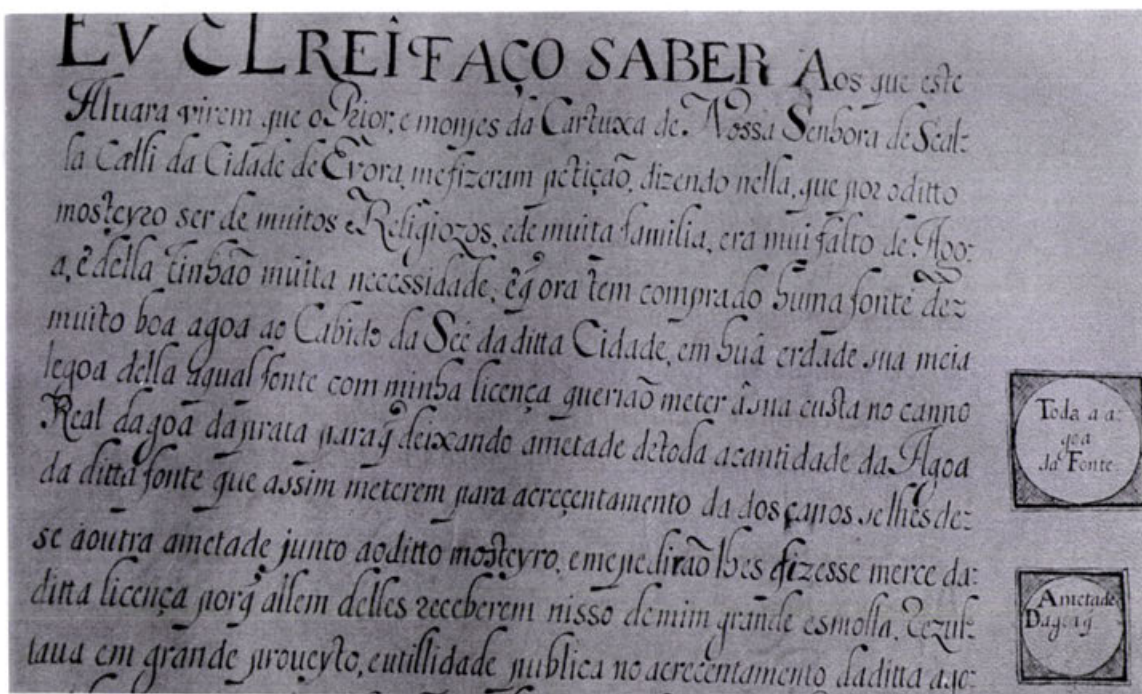 EV ELREI FAÇO SABER Aos que este
Aluara virem que o Prior, e monjes da Cartuxa de Nossa Senhora de Scal:
la Cælli da Cidade de Evora, me fizeram petição, dizendo nella, que por o ditto
mosteyro ser de muitos Religiozos, e de muita familia, era mui falto de Ago:
a, e della tinhão muita necessidade, e q̃ ora tem comprado huma fonte de
muito boa agoa ao Cabido da Seé da ditta Cidade, em huã erdade sua meia
legoa della aqual fonte com minha licença querião meter âsua custa no canno
Real dagoa daprata paraq̃ deixando ametade detoda acantidade da Agoa
da ditta fonte que assim meterem para acreçentamento da dos canos selhes des:
se àoutra ametade junto aoditto mosteyro, emepedirão lhes fizesse merce da:
ditta licença porq̃ allem delles receberem nisso demim grande esmolla, rezul:
taua em grande proueyto, eutillidade publica no acrecentamento daditta ago:
Toda a a:
goa
da Fonte
Ametade
Dagoa